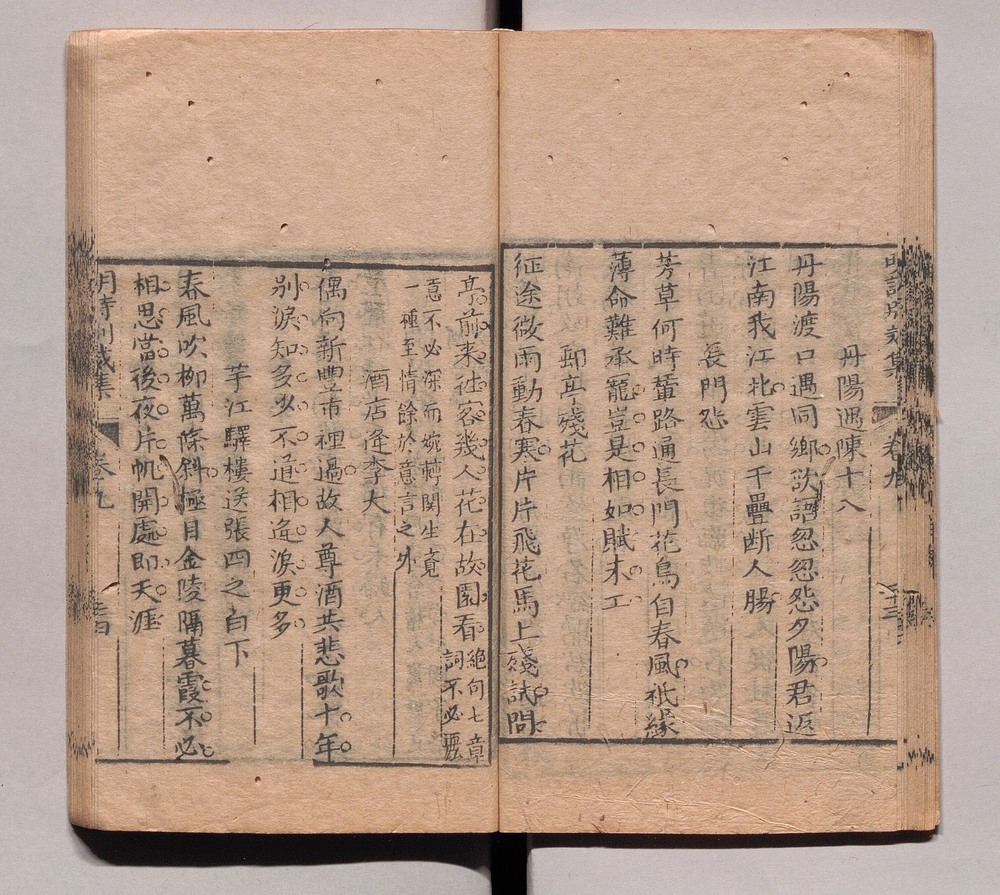 明詩別裁集 卷九 十三
丹陽遇陳十八
丹陽渡口遇同鄉欲語怱怱怨夕陽君返
江南我江北雲山千疊断人腸
長門怨
芳草何時輦路通長門花鳥自春風祇緣
薄命難承寵豈是相如賦未工
郵亭殘花
征途微雨動春寒片片飛花馬上殘試問
亭前来往客幾人花在故園看
絶句七章
詞不必麗
意不必深而婉轉関生竟
一種至情餘於意言之外
酒店逢李大
偶向新豐市裡過故人尊酒共悲歌十年
别淚知多少不道相逢淚更多
芋江驛樓送張四之白下
春風吹柳萬條斜極目金陵隔暮霞不必
相思當後夜片帆開處即天涯
明詩別裁集 卷九